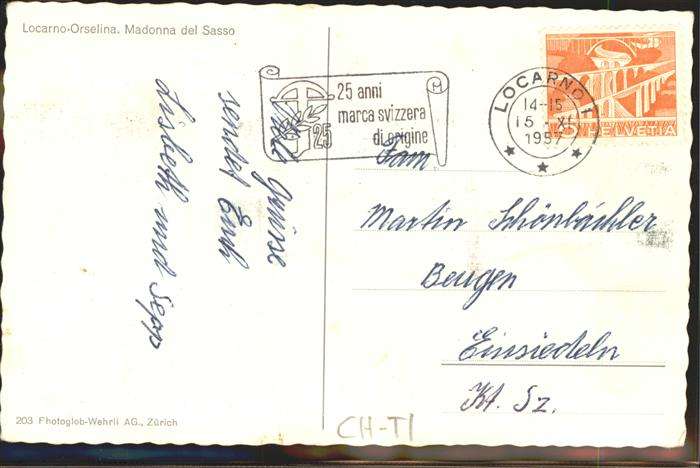 Locarno-Orselina. Madonna del Sasso
Grüsse
sendet Euch
Lisbeth und Sepp
25 anni
marca svizzera
di origine
25
LOCARNO 1
14-15
15. XI.
1957
5 HELVETIA
Fam
Martin Schönbächler
Bengen
Einsiedeln
Kt. Sz.
203 Photoglob-Wehrli AG., Zürich
CH-TI